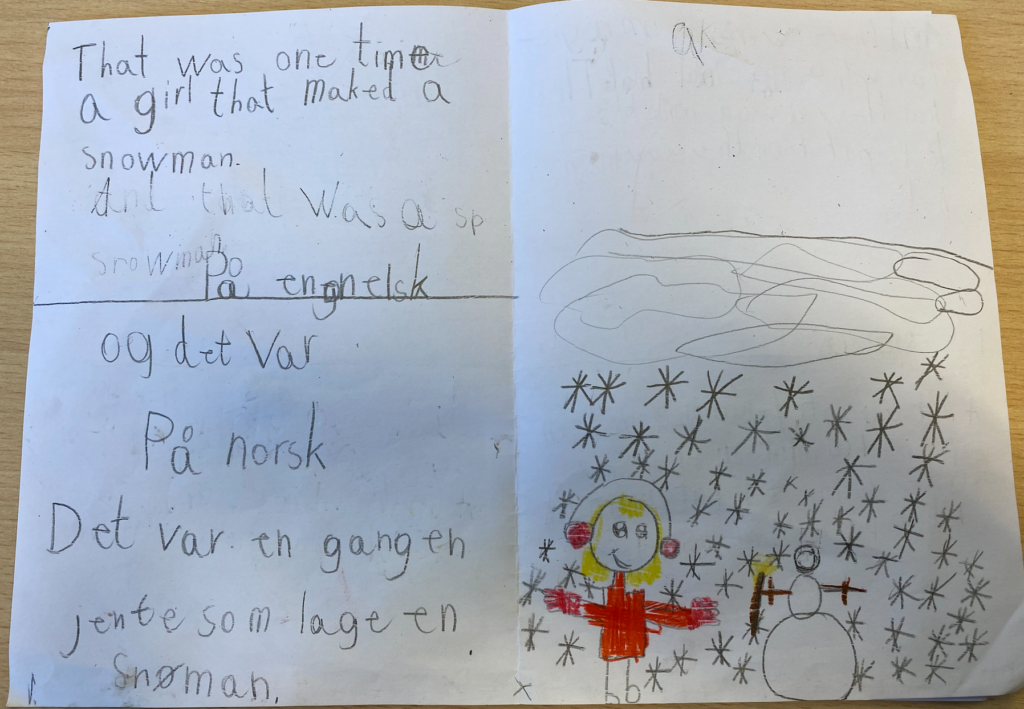 That was one time
a girl that maked a
snowman.
And that was a sp
snowman
På engnelsk
og det var
På norsk
Det var en gang en
jente som lage en
Snøman.